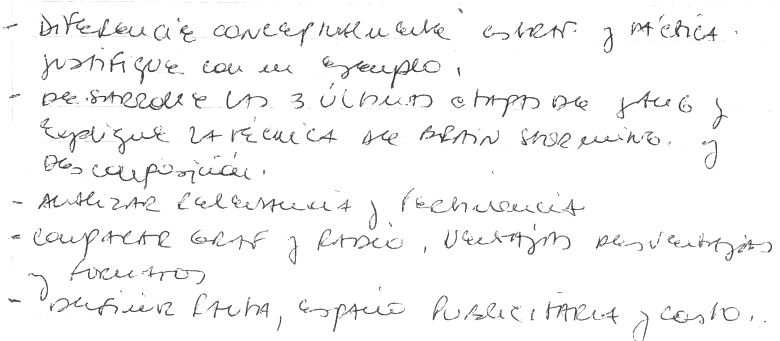 - Diferencie conceptualmente estrat. y táctica.
justifique con un ejemplo.
- Desarrolle las 3 últimas etapas de y
explique la técnica de BRAIN STORMING. y
Descomposición.
- Analizar y
- Comparar GRAF y RADIO, ventajas desventajas
y formatos
- Definir PAUTA, espacio PUBLICITARIA y costo..